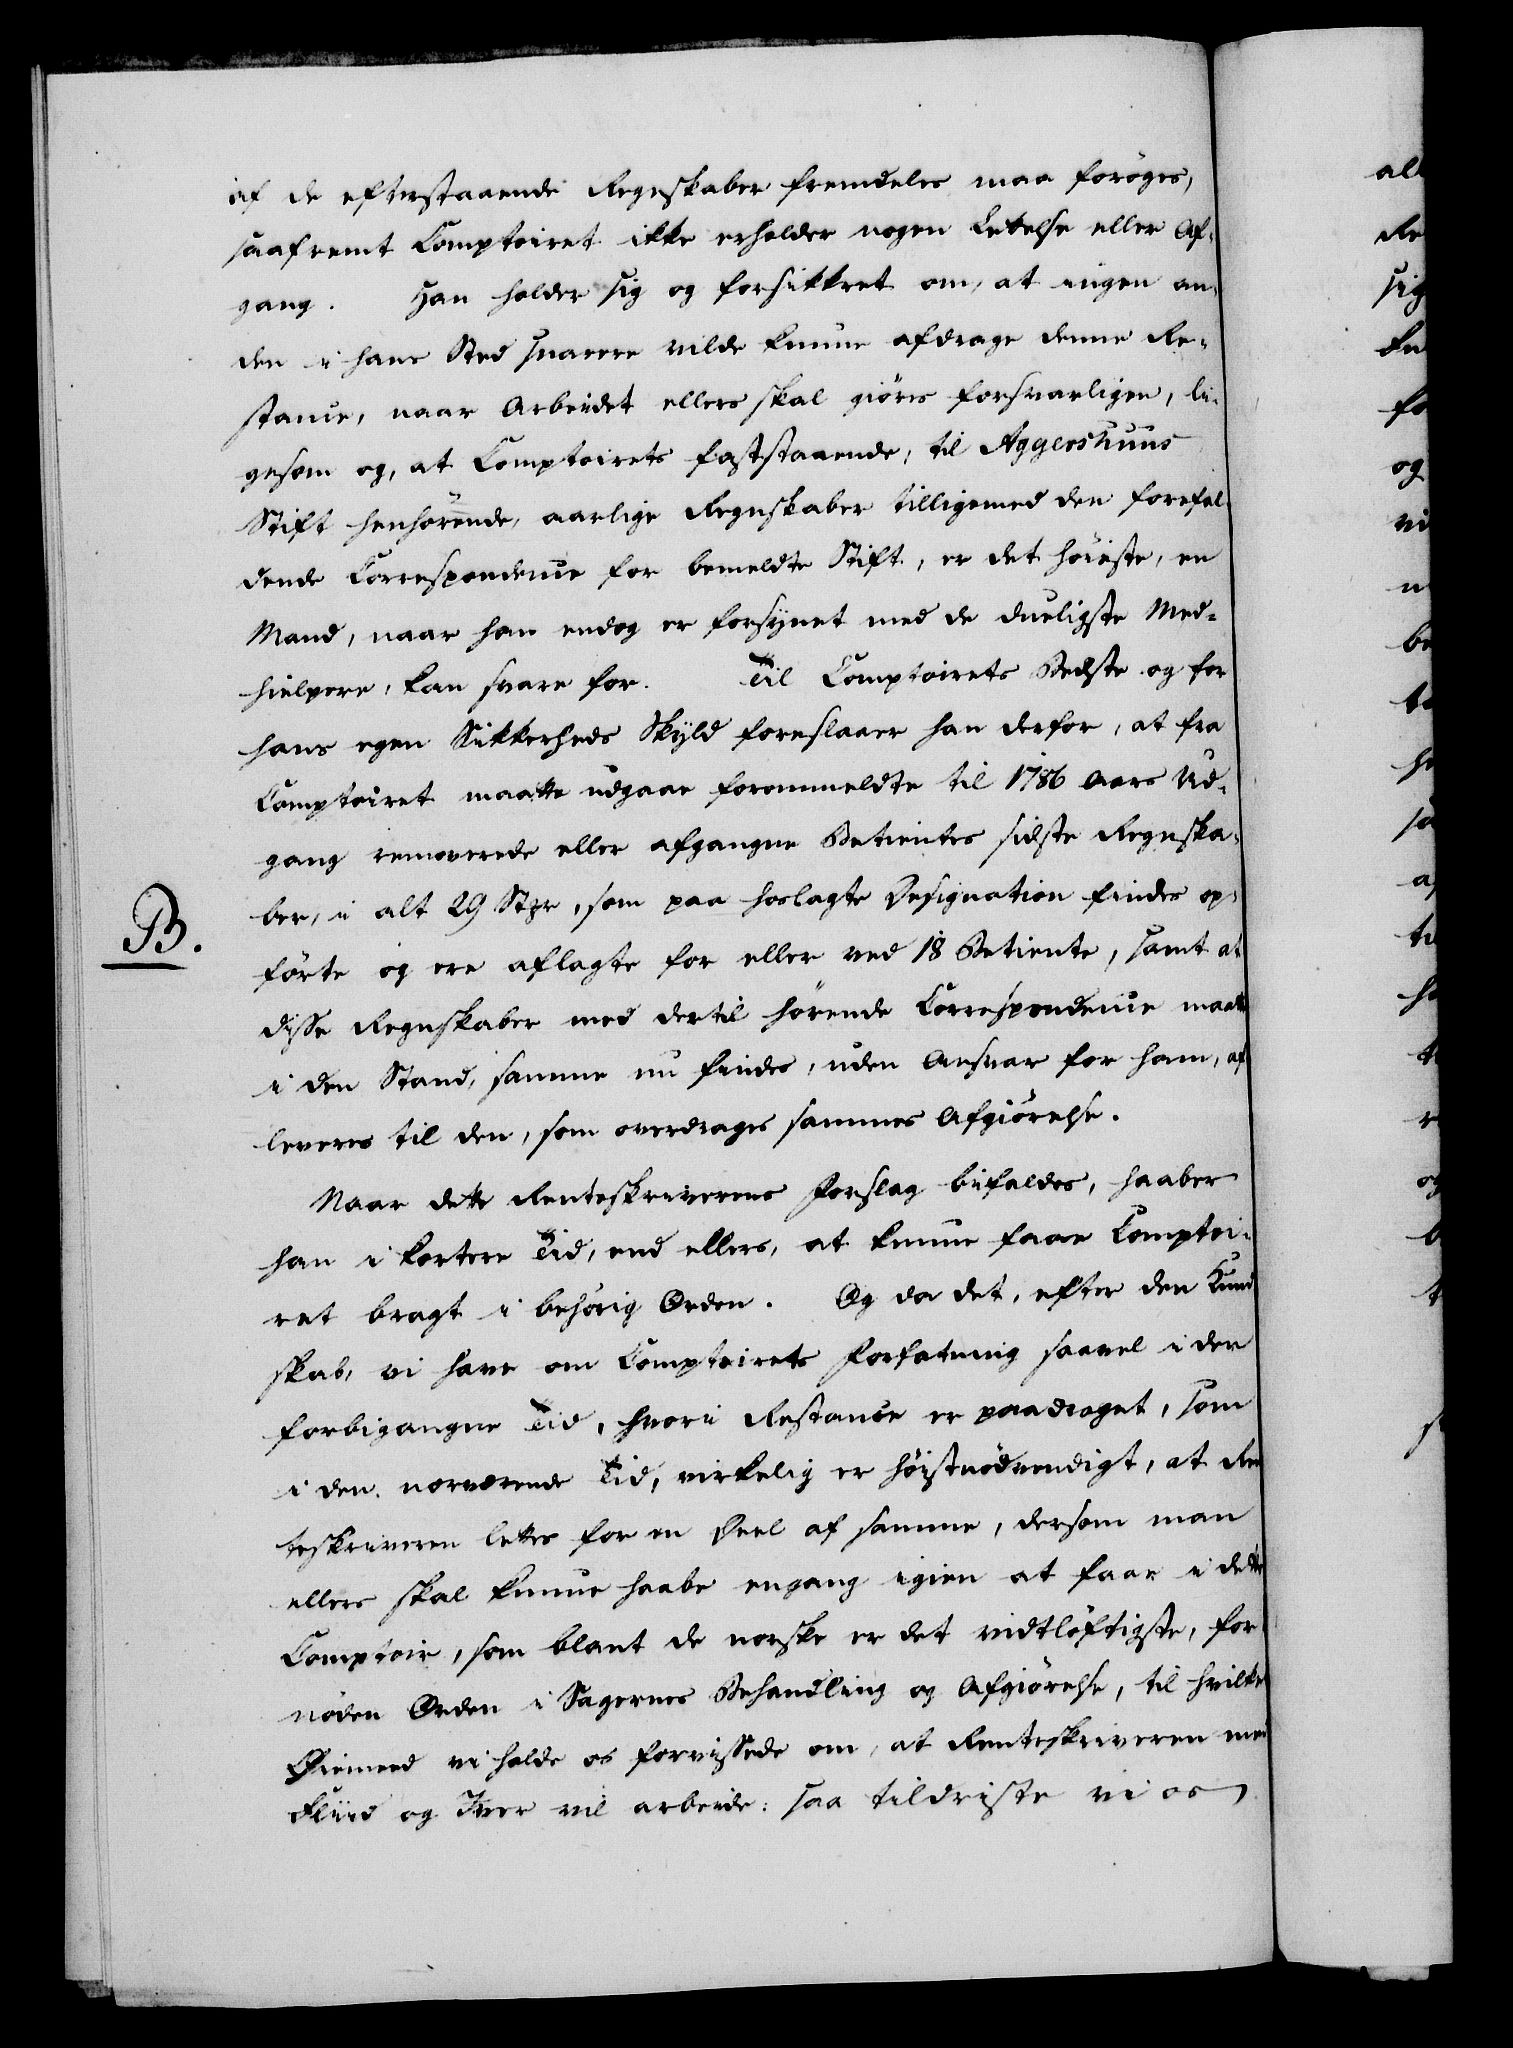 af de efterstaaende Regnskaber fremdeles maa forøges,
saafremt Comptoiret ikke erholder nogen Lettelse eller Af-
gang. Han holder sig og forsikkret om, at ingen an-
den i hans Sted snarere vilde kunne afdrage denne Re-
stance, naar Arbeidet ellers skal giøres forsvarligen, li-
gesom og, at Comptoirets faststaaende, til Aggershuus
Stift henhørende, aarlige Regnskaber tilligemed den forefal-
dende Correspondence for bemeldte Stift, er det høieste, en
Mand, naar han endog er forsynet med de dueligste Med-
hielpere, kan svare for. Til Comptoirets Bedste og for
hans egen Sikkerheds Skyld foreslaaer han derfor, at fra
Comptoiret maatte udgaae forommeldte til 1786 Aars Ud-
gang removerede eller afgangne Betientes sidste Regnska-
ber, i alt 29 Stkr, som paa hoslagte Designation findes op-
B.
førte og ere aflagte for eller ved 18 Betiente, samt at
disse Regnskaber med dertil hørende Correspondence maatte
i den Stand, samme nu findes, uden Ansvar for ham, af-
leveres til den, som overdrages sammes Afgiørelse.
Naar dette Renteskriverens Forslag bifaldes, haaber
han i kortere Tid, end ellers, at kunne faae Comptoi-
ret bragt i behørig Orden. Og da det, efter den Kund-
skab, vi have om Comptoirets Forfatning saavel i den
forbigangne Tid, hvori Restance er paadraget, som
i den nærværende Tid, virkelig er høistnødvendigt, at Ren-
teskriveren lettes for en Deel af samme, dersom man
ellers skal kunne haabe engang igien at faae i dette
Comptoir, som blant de norske er det vidtløftigste, for-
nøden Orden i Sagernes Behandling og Afgiørelse, til hvilket
Øiemeed vi holde os forvissede om, at Renteskriveren med
Fliid og Iver vil arbeide: saa tildriste vi os